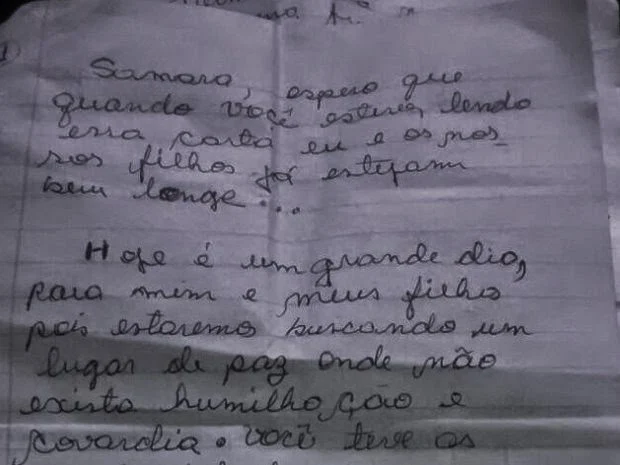 1
Samara, espero que
quando você estiver lendo
essa carta eu e os nos_
sos filhos já estejam
bem longe...
Hoje é um grande dia,
para mim e meus filho
pois estaremo buscando um
lugar de paz onde não
exista humilhação e
covardia. Você teve os